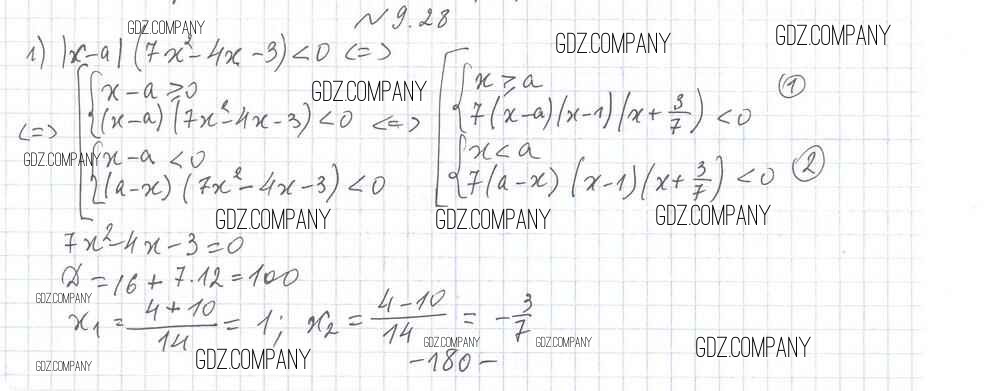 № 9.28
GDZ.COMPANY GDZ.COMPANY GDZ.COMPANY
1) |x-a| (7x²-4x-3)<0 <=>
<=> [ { x-a ≥ 0 GDZ.COMPANY
(x-a) (7x²-4x-3) < 0 <=> [ { x ≥ a ①
7(x-a)(x-1)(x+3/7) < 0
GDZ.COMPANY { x-a < 0
(a-x) (7x²-4x-3) < 0
{ x < a
7(a-x) (x-1)(x+3/7) < 0 ②
GDZ.COMPANY GDZ.COMPANY GDZ.COMPANY
7x²-4x-3=0
D = 16 + 7·12 = 100
GDZ.COMPANY
x₁ = (4+10)/14 = 1; x₂ = (4-10)/14 = -3/7
GDZ.COMPANY GDZ.COMPANY GDZ.COMPANY
GDZ.COMPANY GDZ.COMPANY
-180-